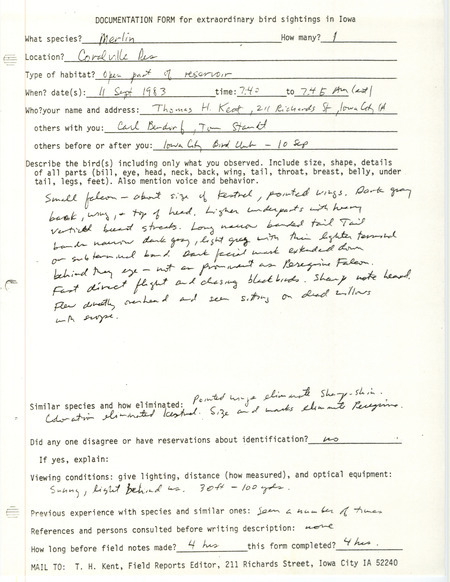 DOCUMENTATION FORM for extraordinary bird sightings in Iowa
What species? Merlin How many? 1
Location? Coralville Res
Type of habitat? Open part of reservoir
When? date(s): 11 Sept 1983 time: 7:42 to 7:45 AM (cst)
Who? your name and address: Thomas H. Kent, 211 Richards St, Iowa City IA
others with you: Carl Bendorf, Tom
others before or after you: Iowa City Bird Club - 10 Sep
Describe the bird(s) including only what you observed. Include size, shape, details
of all parts (bill, eye, head, neck, back, wing, tail, throat, breast, belly, under
tail, legs, feet). Also mention voice and behavior.
Small falcon - about size of Kestrel, pointed wings. Dark gray
back, wing, + top of head. Lighter underparts with heavy
vertical breast streaks. Long narrow banded tail. Tail
bands narrow dark gray, light gray with thin lighter terminal
or subterminal band. Dark facial mark extended down
behind the eye - not as prominent as Peregrine Falcon.
Fast direct flight and chasing blackbirds. Sharp note heard.
Flew directly overhead and seen sitting on dead willows
with scope.
Similar species and how eliminated: Pointed wings eliminate Sharp-shin.
Coloration eliminated Kestrel. Size and marks eliminate Peregrine.
Did any one disagree or have reservations about identification? no
If yes, explain:
Viewing conditions: give lighting, distance (how measured), and optical equipment:
Sunny, light behind us. 30 ft - 100 yds.
Previous experience with species and similar ones: Seen a number of times
References and persons consulted before writing description: none
How long before field notes made? 4 hrs this form completed? 4 hrs.
MAIL TO: T. H. Kent, Field Reports Editor, 211 Richards Street, Iowa City IA 52240